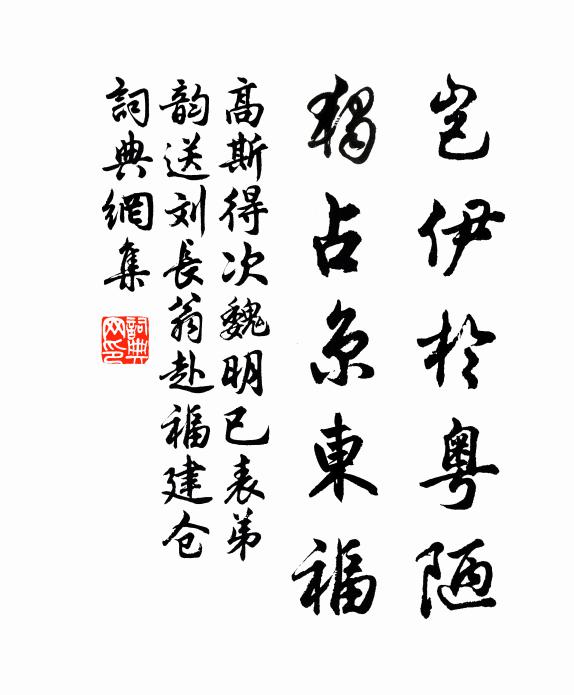 岂伊於粤陋
獨占京東福
高斯得次魏明已表弟
韵送刘長翁赴福建仓
詞典網集
詞典网印